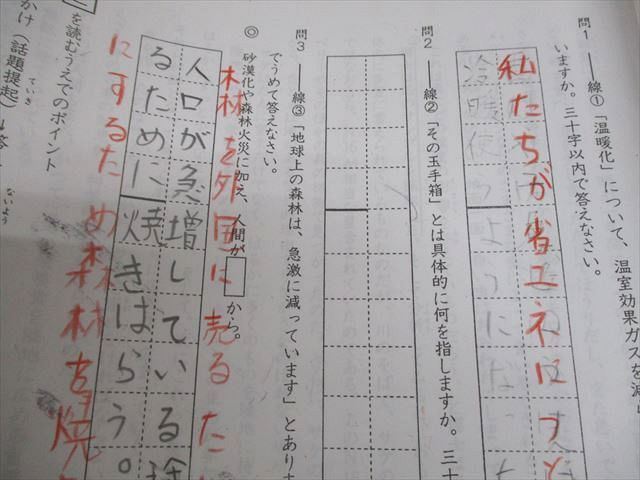 問1 ――線①「温暖化」について、温室効果ガスを減
いますか。三十字以内で答えなさい。
私たちが省エネにつと
冷暖
使うようにな
問2 ――線②「その玉手箱」とは具体的に何を指しますか。三十
問3 ――線③「地球上の森林は、急激に減っています」とあり
でうめて答えなさい。
◎ 砂漠化や森林火災に加え、人間が から。
森林を外国に売るた
人口が急増している途
るために焼きはらう。
にするため森林を焼
を読むうえでのポイント
かけ（話題提起）
ていき
ないよう